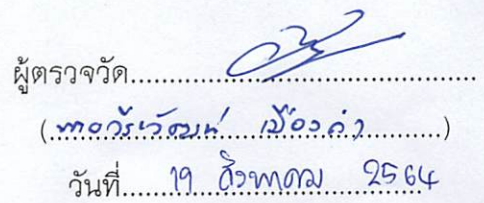 ผู้ตรวจวัด
(นายวีระวัฒน์ เมืองคำ)
วันที่ 19 สิงหาคม 2564